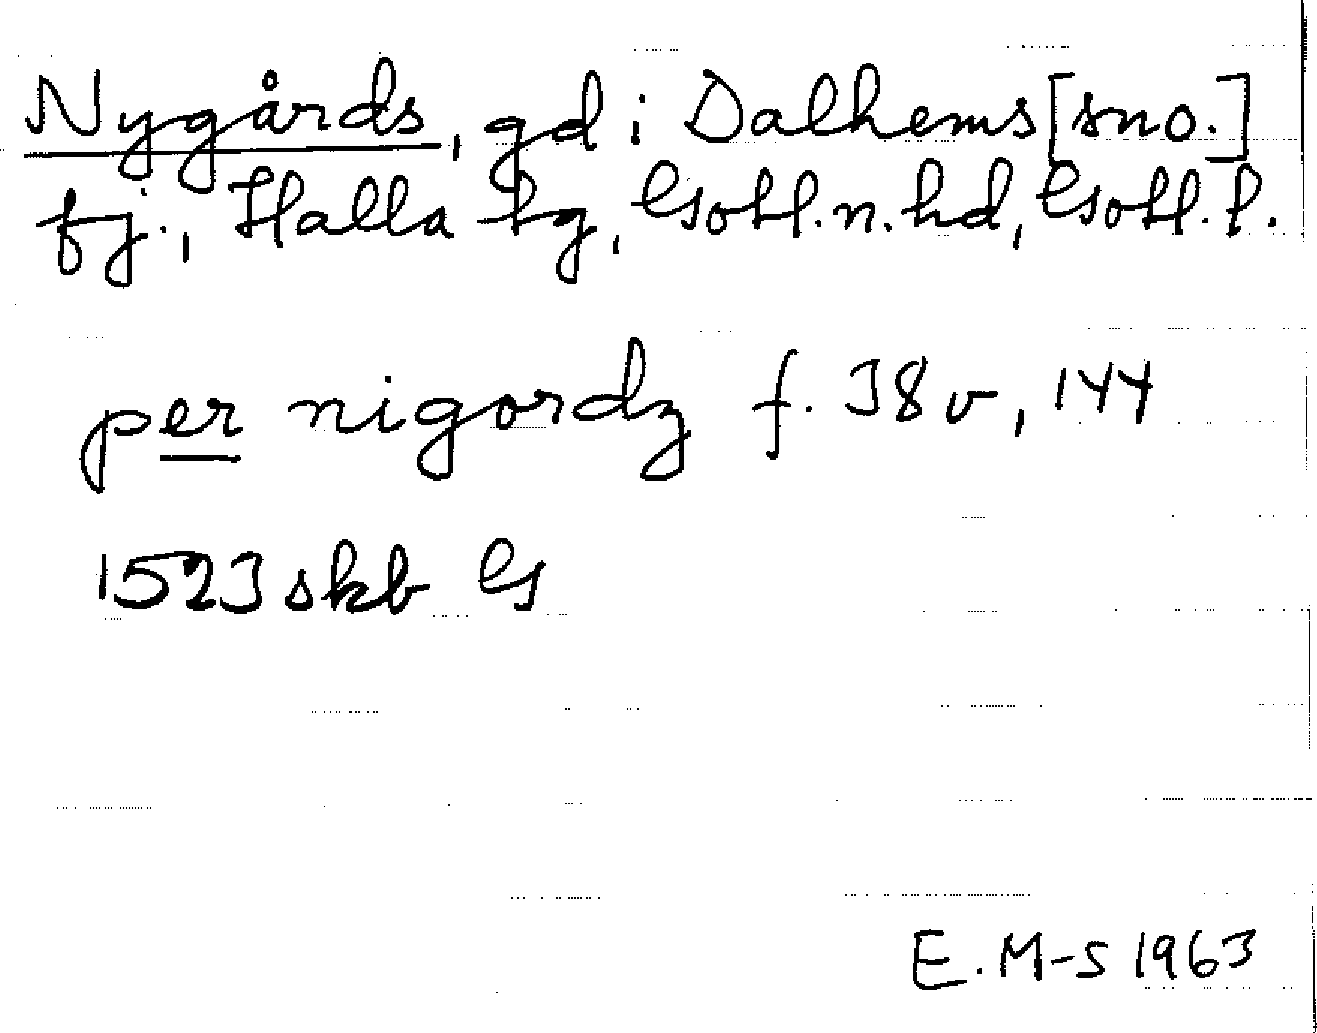 Nygårds, gd i Dalhems [sno.]
fj., Halla tg, Gotl. n. hd, Gotl. l.
per nigordz f. 38v, 144
1523 skb G
E. M-S 1963